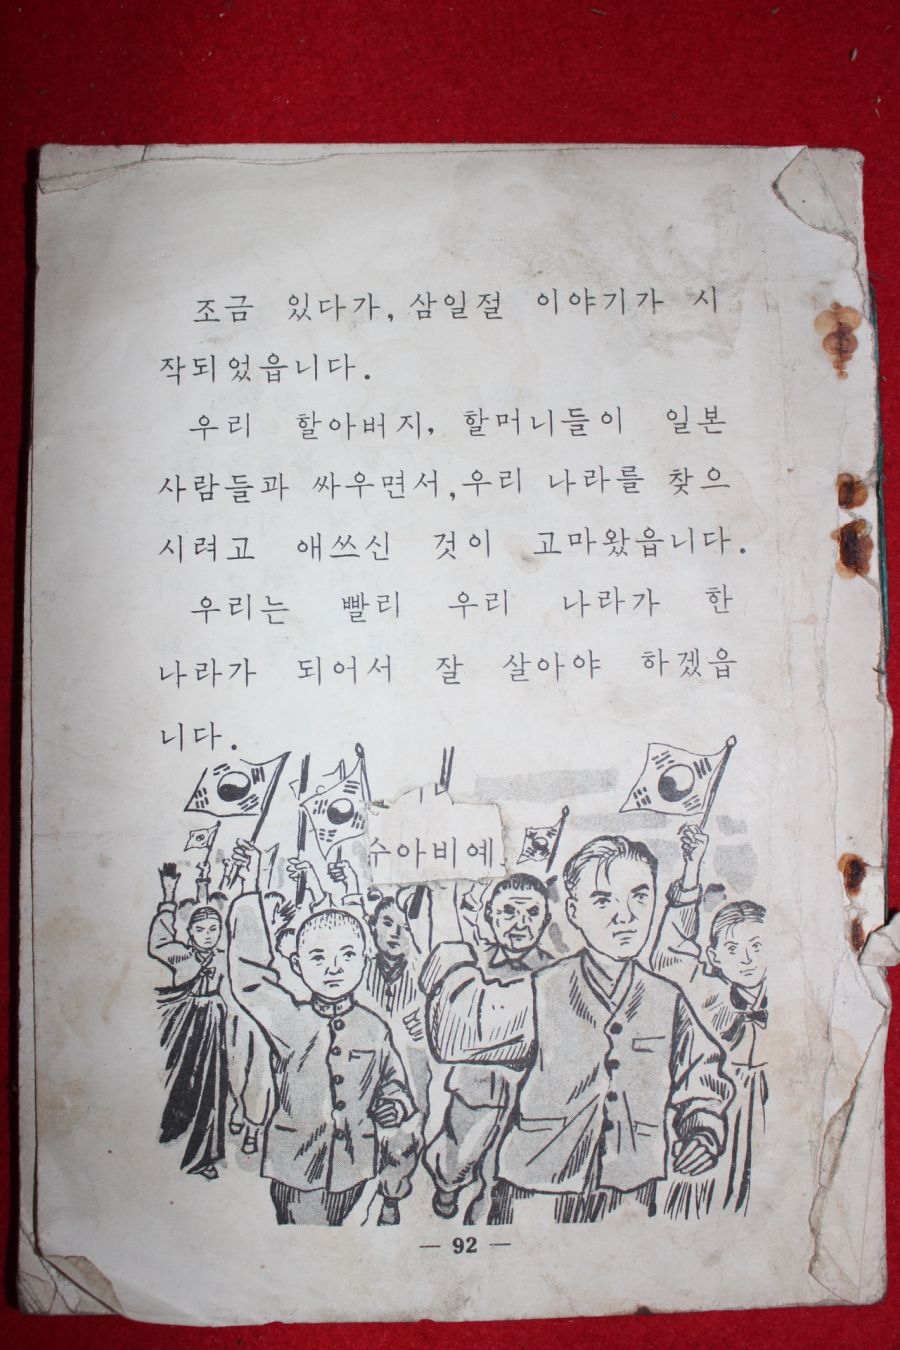 조금 있다가, 삼일절 이야기가 시
작되었읍니다.
우리 할아버지, 할머니들이 일본
사람들과 싸우면서, 우리 나라를 찾으
시려고 애쓰신 것이 고마왔읍니다.
우리는 빨리 우리 나라가 한
나라가 되어서 잘 살아야 하겠읍
니다.
수아비예.
— 92 —